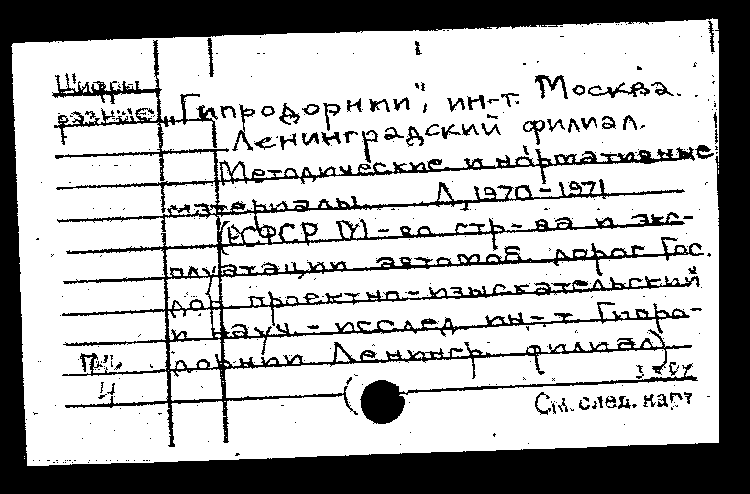 Шифры
разные „Гипродорнии", ин-т. Москва.
Ленинградский филиал.
Методические и нормативные
материалы. Л, 1970-1971
(РСФСР М-во стр-ва и экс-
плуатации автомоб. дорог Гос.
дор проектно-изыскательский
и науч.-исслед. ин-т Гипро-
дорнии Ленингр. филиал)
4
См. след. карт